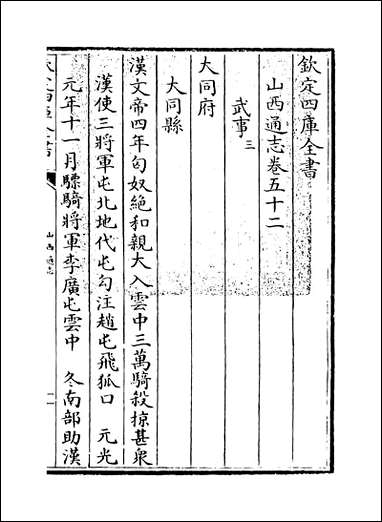 欽定四庫全書
山西通志卷五十二
武事三
大同府
大同縣
漢文帝四年匈奴絶和親大入雲中三萬騎殺掠甚衆
漢使三將軍屯北地代屯勾注趙屯飛狐口　元光
元年十一月驃騎將軍李廣屯雲中　冬南部助漢
山西通志